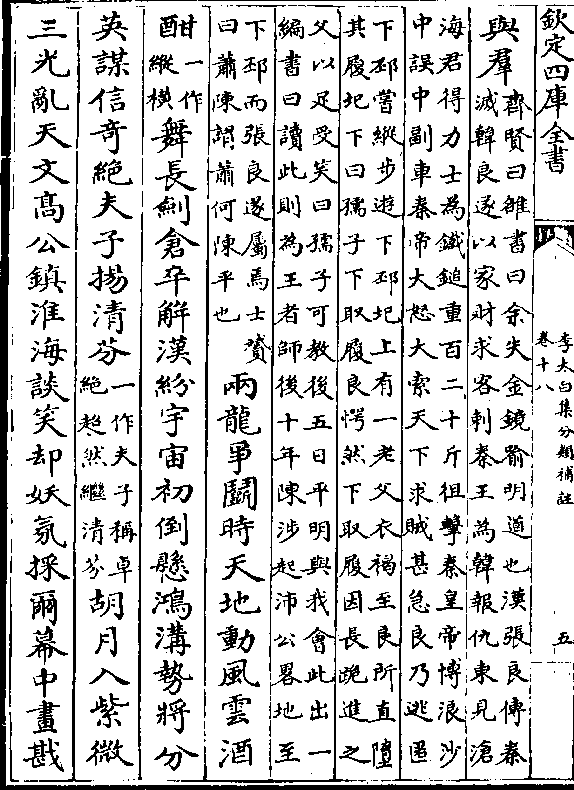 欽定四庫全書
李太白集分類補註
卷十八
五
與羣
齊賢曰雒書曰余失金鏡喻明道也漢張良傳秦
滅韓良遂以家財求客刺秦王為韓報仇東見滄
海君得力士為鐵鎚重百二十斤狙擊秦皇帝博浪沙
中誤中副車秦帝大怒大索天下求賊甚急良乃逃匿
下邳嘗縱步遊下邳圯上有一老父衣褐至良所直墮
其履圯下曰孺子下取履良愕然下取履因長跪進之
父以足受笑曰孺子可教後五日平明與我會此出一
編書曰讀此則為王者師後十年陳涉起沛公畧地至
下邳而張良遂屬焉士贇
曰蕭陳謂蕭何陳平也
兩龍爭鬭時天地動風雲酒
酣
一作
縱橫
舞長劍倉卒解漢紛宇宙初倒懸鴻溝勢將分
英謀信奇絶夫子揚清芬
一作夫子稱卓
絶超然繼清芬
胡月入紫微
三光亂天文高公鎮淮海談笑却妖氛採爾幕中畫戡